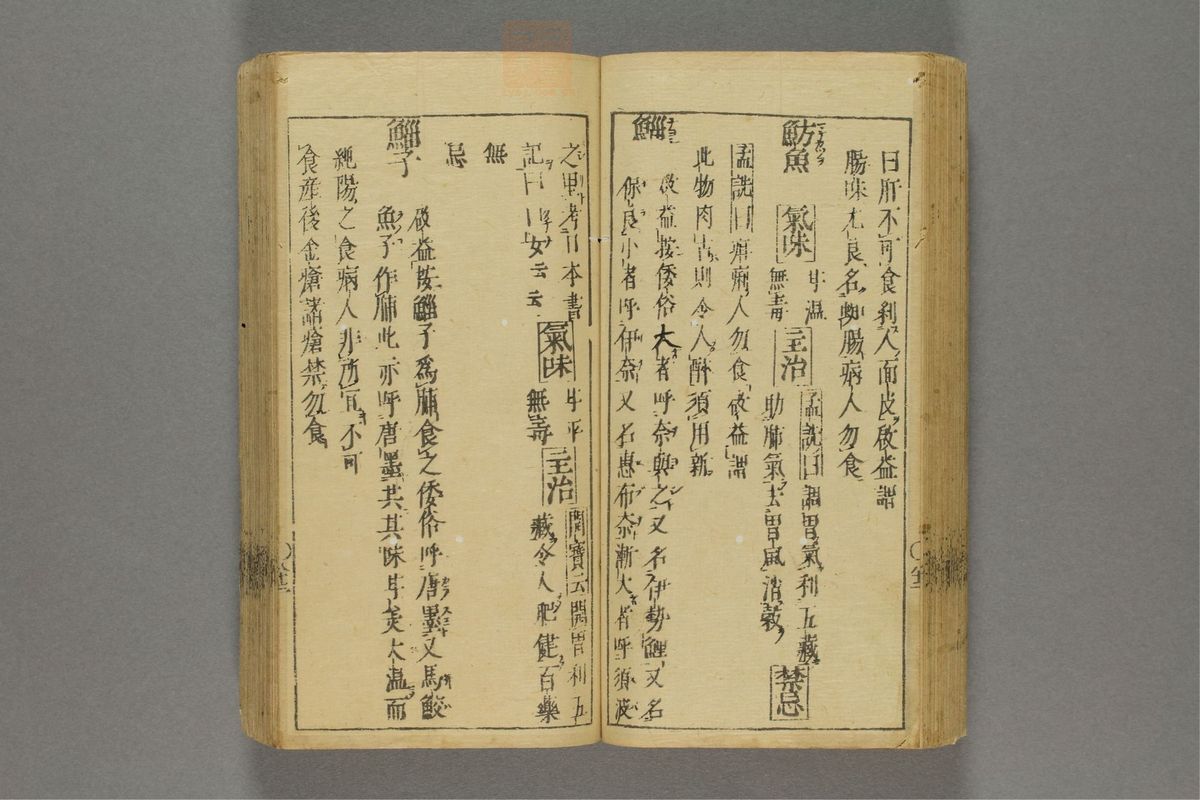 曰肝不可食剥人面皮啟益謂
腸味尤良名鮑腸病人勿食
魴魚
氣味
甘温
無毒
主治
孟詵曰調胃氣利五藏
助肺氣去胃風消穀
禁忌
孟詵曰疳痢人勿食啟益謂
此物肉古則令人醉須用新
鯔
啟益按倭俗大者呼奈與之又名伊勢鯉又名
保良小者呼伊奈又名惠布奈漸大者呼須波
之里考日本書
記曰口女云云
氣味
甘平
無毒
主治
開寳云開胃利五
藏令人肥健百藥
無
忌
鯔子
啟益按鯔子爲脯食之倭俗呼唐墨又馬鮫
魚子作脯此亦呼唐墨共其味甘美大温而
純陽之食病人非所宜不可
食産後金瘡諸瘡禁勿食